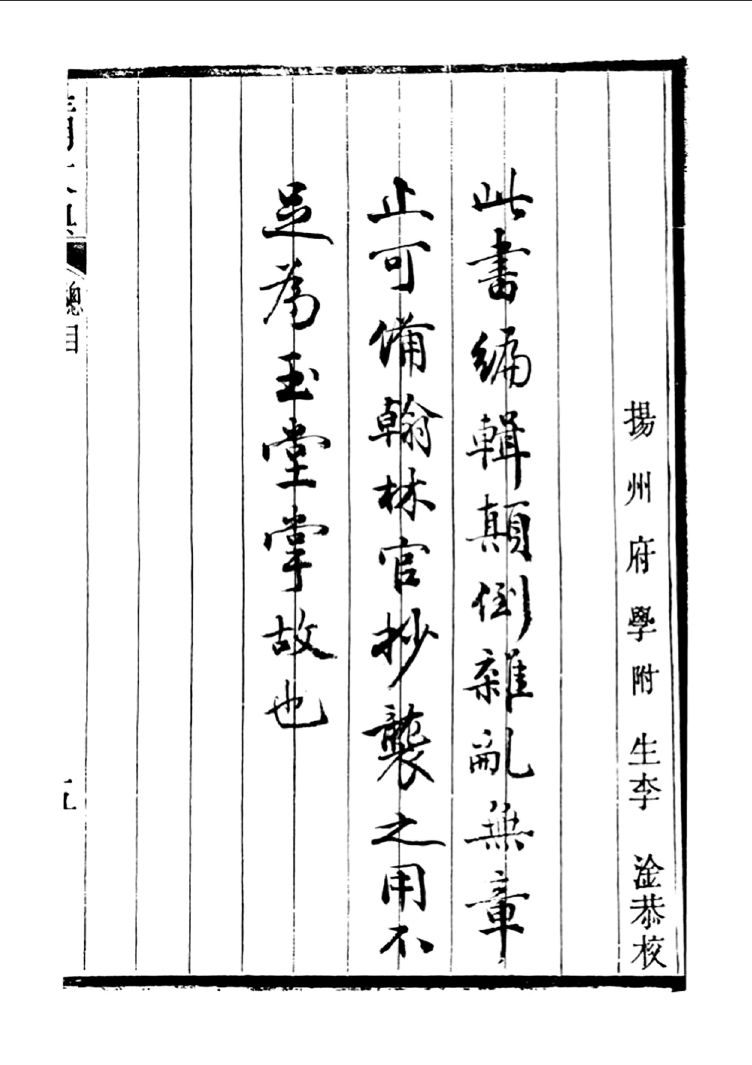 揚州府學附生李 淦恭校
此書編輯顛倒雜亂無章
止可備翰林官抄襲之用不
足為玉堂掌故也
總目
五